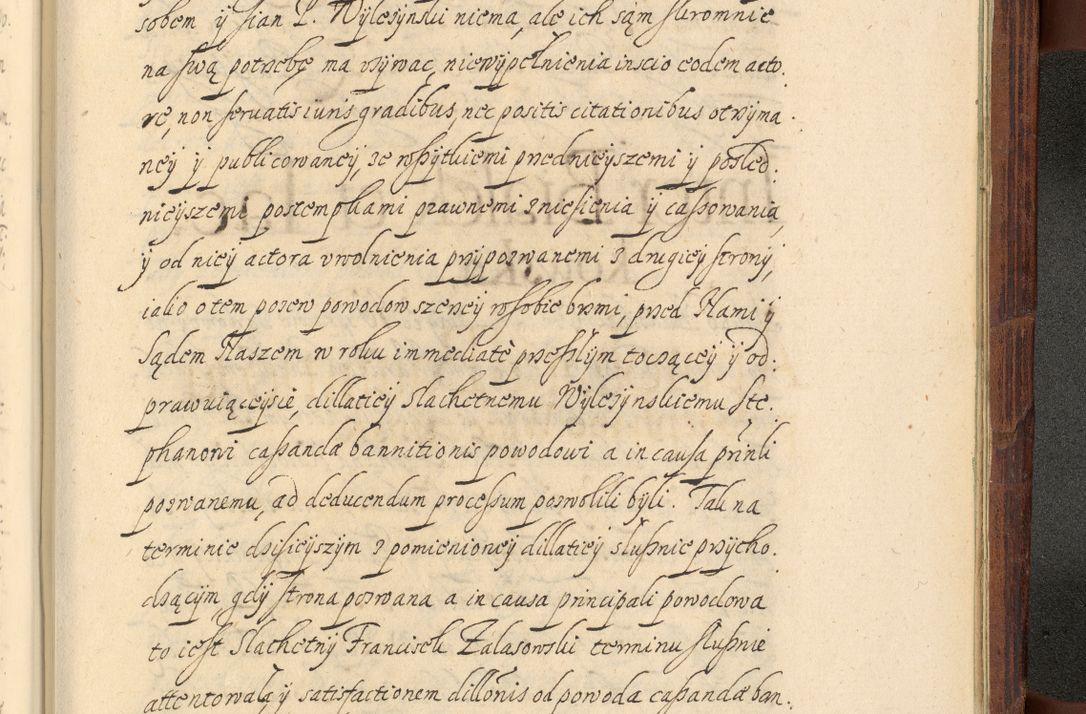 sobem ÿ sian P. Wÿlezÿnski niema, ale ich sąm skromnie
na swą potrzebę ma vzÿwac, niewÿpełnienia inscio eodem acto.
re, non seruatis iuris gradibus, nec positis citationibus otrzÿma
neÿ ÿ publicowaneÿ, ze wszÿtkiemi przednieÿszemi ÿ posled.
nieÿszemi postempkami prawnemi zniesienia ÿ cassowania,
ÿ od nieÿ actora vwolnienia przÿpozwanemi z drugieÿ stronÿ,
iako o tem pozew powodow szerzeÿ w sobie brzmi, przed Nami ÿ
Sądem Naszem w roku immediatè przeszlÿm tocząceÿ ÿ od.
prawuiąceÿsie, dillatieÿ Slachetnemu Wÿlezÿnskiemu Ste.
phanowi cassandæ bannitionis powodowi a in causa prinli
pozwanemu, ad deducendum processum pozwolili bÿli. Tak na
terminie dzisieÿszÿm z pomienioneÿ dillatieÿ slusznie przÿcho.
dzącÿm, gdÿ strona pozwana a in causa principali powodowa
to iest Slachetnÿ Franciszek Zalasowski terminu slusznie
attentowała ÿ satisfactionem dillonis od powoda cassandæ ban.